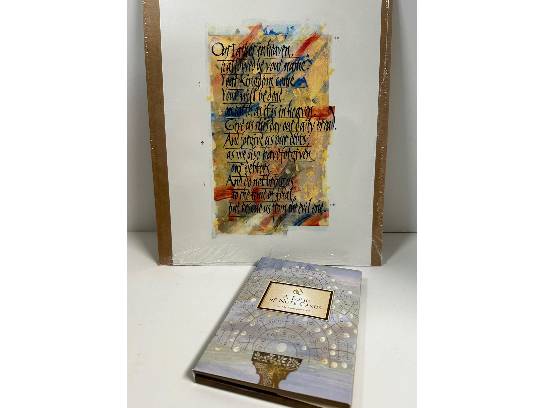 Our Father in heaven,
hallowed be your name.
Your Kingdom come
Your will be done
on earth as it is in heaven
Give us this day our daily bread.
And forgive us our debts,
as we also have forgiven
our debtors.
And do not bring us
to the time of trial,
but rescue us from the evil one.
A BOOK
OF NOTE CARDS